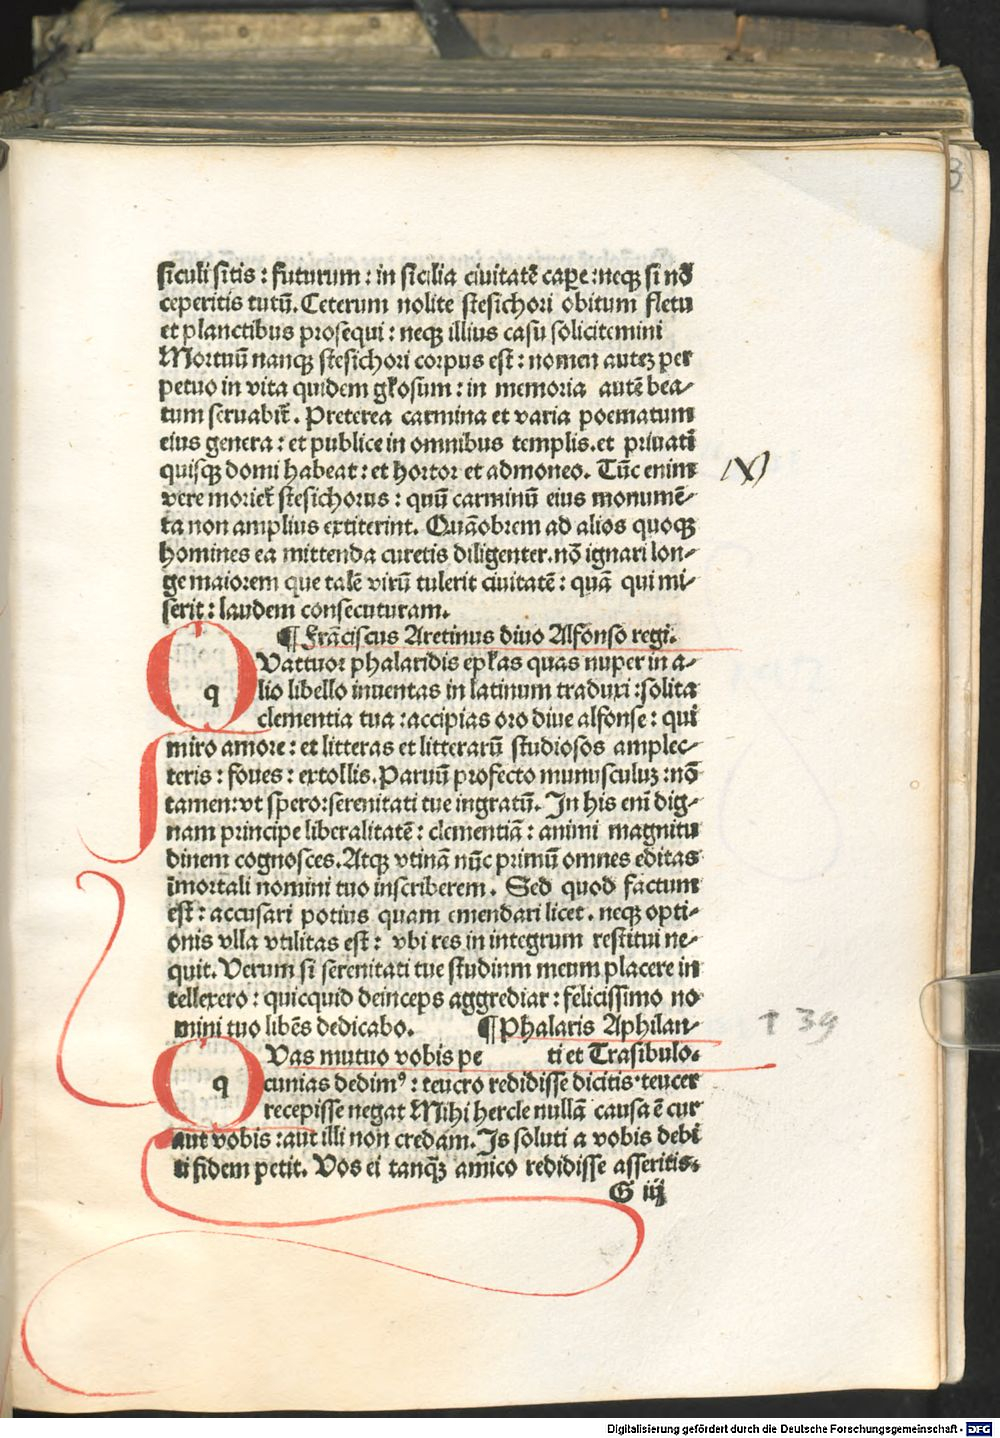 siculi sitis : futurum : in sicilia ciuitatē caꝑe : neqꝫ si nō
ceperitis tutū. Ceterum nolite stesichori obitum fletu
et planctibus prosequi : neqꝫ illius casu solicitemini
Mortuū nanqꝫ stesichori corpus est : nomen auteꝫ per
petuo in vita quidem gl'osum : in memoria autē bea-
tum seruabit̄. Preterea carmina et varia poematum
eius genera : et publice in omnibus templis. et priuati
quisqꝫ domi habeat : et hortor et admoneo. Tūc enim
vere moriet̄ stesichorus : quū carminū eius monumē-
ta non amplius extiterint. Quāobrem ad alios quoqꝫ
homines ea mittenda curetis diligenter. nō ignari lon-
ge maiorem que talē virū tulerit ciuitatē : quā qui mi-
serit : laudem consecuturam.
¶ Frāciscus Aretinus diuo Alfonso regi.
q Vattuor phalaridis epl'as quas nuper in a-
lio libello inuentas in latinum traduxi : solita
clementia tua : accipias oro diue alfonse : qui
miro amore : et litteras et litterarū studiosos amplec-
teris : foues : extollis. Paruū profecto munusculuꝫ : nō
tamen : vt spero : serenitati tue ingratū. In his eni dig-
nam principe liberalitatē : clementiā : animi magnitu
dinem cognosces. Atqꝫ vtinā nūc primū omnes editas
īmortali nomini tuo inscriberem. Sed quod factum
est : accusari potius quam emendari licet. neqꝫ opti-
onis vlla vtilitas est : vbi res in integrum restitui ne-
quit. Verum si serenitati tue studium meum placere in
tellexero : quicquid deinceps aggrediar : felicissimo no
mini tuo libēs dedicabo. ¶ Phalaris Aphilan-
q Vas mutuo vobis pe ti et Trasibulo.
cunias dedimꝰ : teucro redidisse dicitis. teucer
recepisse negat Mihi hercle nullā causā ē cur
aut vobis : aut illi non credam. Is soluti a vobis debi
ti fidem petit. Vos ei tanqꝫ amico redidisse asseritis.
G iij
139
Digitalisierung gefördert durch die Deutsche Forschungsgemeinschaft - DFG